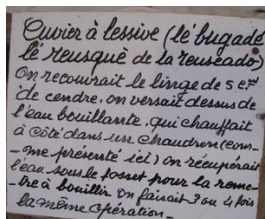 Cuvier à lessive (lé bugadé
lé reusqué de la reuseado)
On recouvrait le linge de 5 cm
de cendre, on versait dessus de
l'eau bouillante, qui chauffait
à côté dans un chaudron (com-
-me présenté ici) on récupérait
l'eau sous le fosset pour la reme-
-tre à bouillir On faisait 3 ou 4 fois
la même opération -